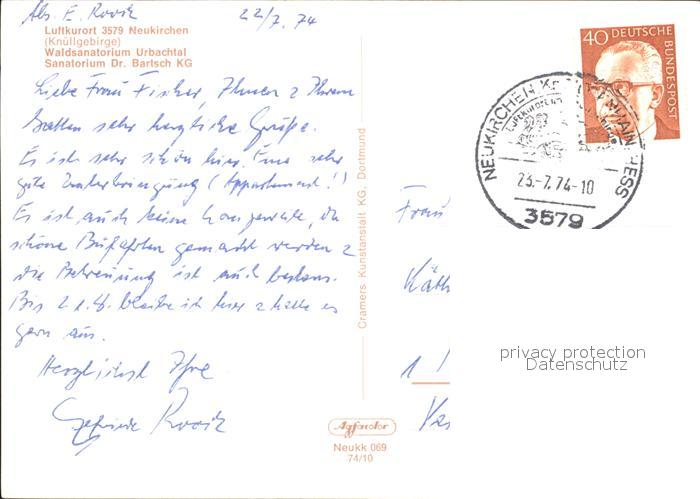 Abs. E.
22/7. 74
Luftkurort 3579 Neukirchen
(Knüllgebirge)
Waldsanatorium Urbachtal
Sanatorium Dr. Bartsch KG
Liebe Frau Fischer, Ihnen & Ihrem
Gatten sehr herzliche Grüße.
Es ist sehr schön hier. Eine sehr
gute Unterbringung (Appartement!)
Es ist auch keine Langeweile, da
schöne Busfahrten gemacht werden &
die Betreuung ist auch bestens.
Bis 2. bleibe ich hier & halte es
gern aus.
Herzlichst Ihre
40 DEUTSCHE BUNDESPOST
NEUKIRCHEN HESS
Luftkurort im
23.-7.74-10
3579
Frau
Käth
1
Cramers Kunstanstalt KG, Dortmund
Agfacolor
Neukk 069
74/10
privacy protection
Datenschutz